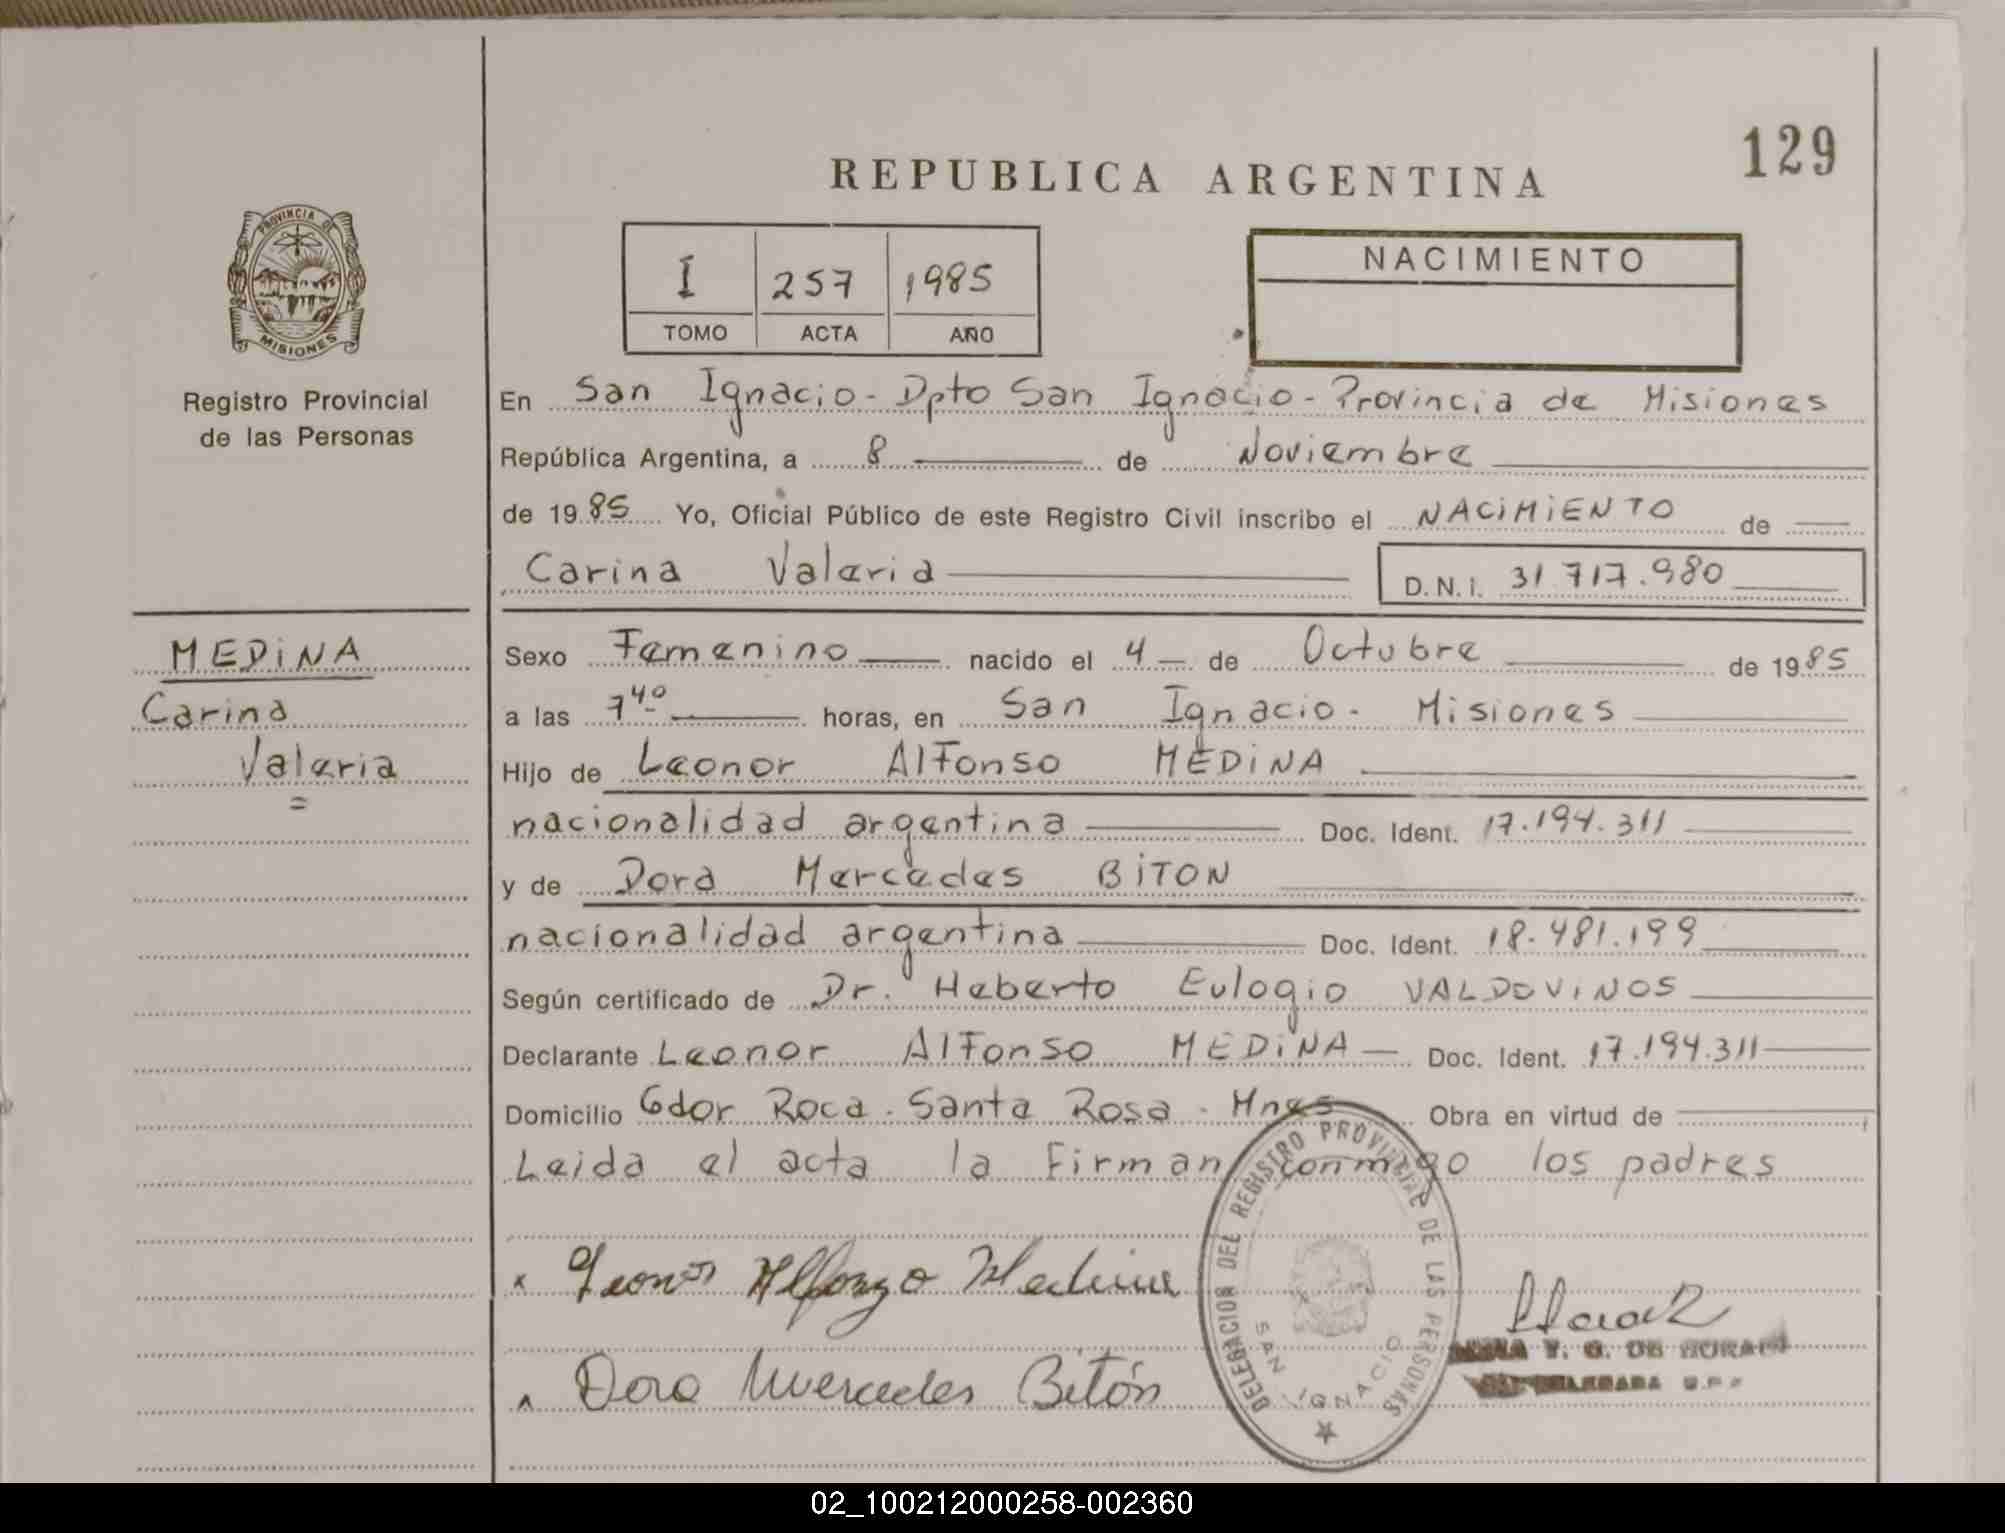 129
REPUBLICA ARGENTINA
PROVINCIA DE
MISIONES
Registro Provincial
de las Personas
I 257 1985
TOMO ACTA AÑO
NACIMIENTO
En San Ignacio - Dpto San Ignacio - Provincia de Misiones
República Argentina, a 8 de Noviembre
de 1985 Yo, Oficial Público de este Registro Civil inscribo el NACIMIENTO de
Carina Valeria D.N.I. 31.717.980
MEDINA
Carina
Valeria
Sexo Femenino nacido el 4 de Octubre de 1985
a las 7 40 horas, en San Ignacio - Misiones
Hijo de Leonor Alfonso MEDINA
nacionalidad argentina Doc. Ident. 17.194.311
y de Dora Mercedes BITON
nacionalidad argentina Doc. Ident. 18.481.199
Según certificado de Dr. Heberto Eulogio VALDOVINOS
Declarante Leonor Alfonso MEDINA Doc. Ident. 17.194.311
Domicilio Gdor Roca - Santa Rosa - Mnes Obra en virtud de
Leida el acta la Firman conmigo los padres
x Leonor Alfonzo Medina
Dora Mercedes Bitón
DELEGACION DEL REGISTRO PROVINCIAL DE LAS PERSONAS
SAN IGNACIO
Y. G. DE
02_100212000258-002360